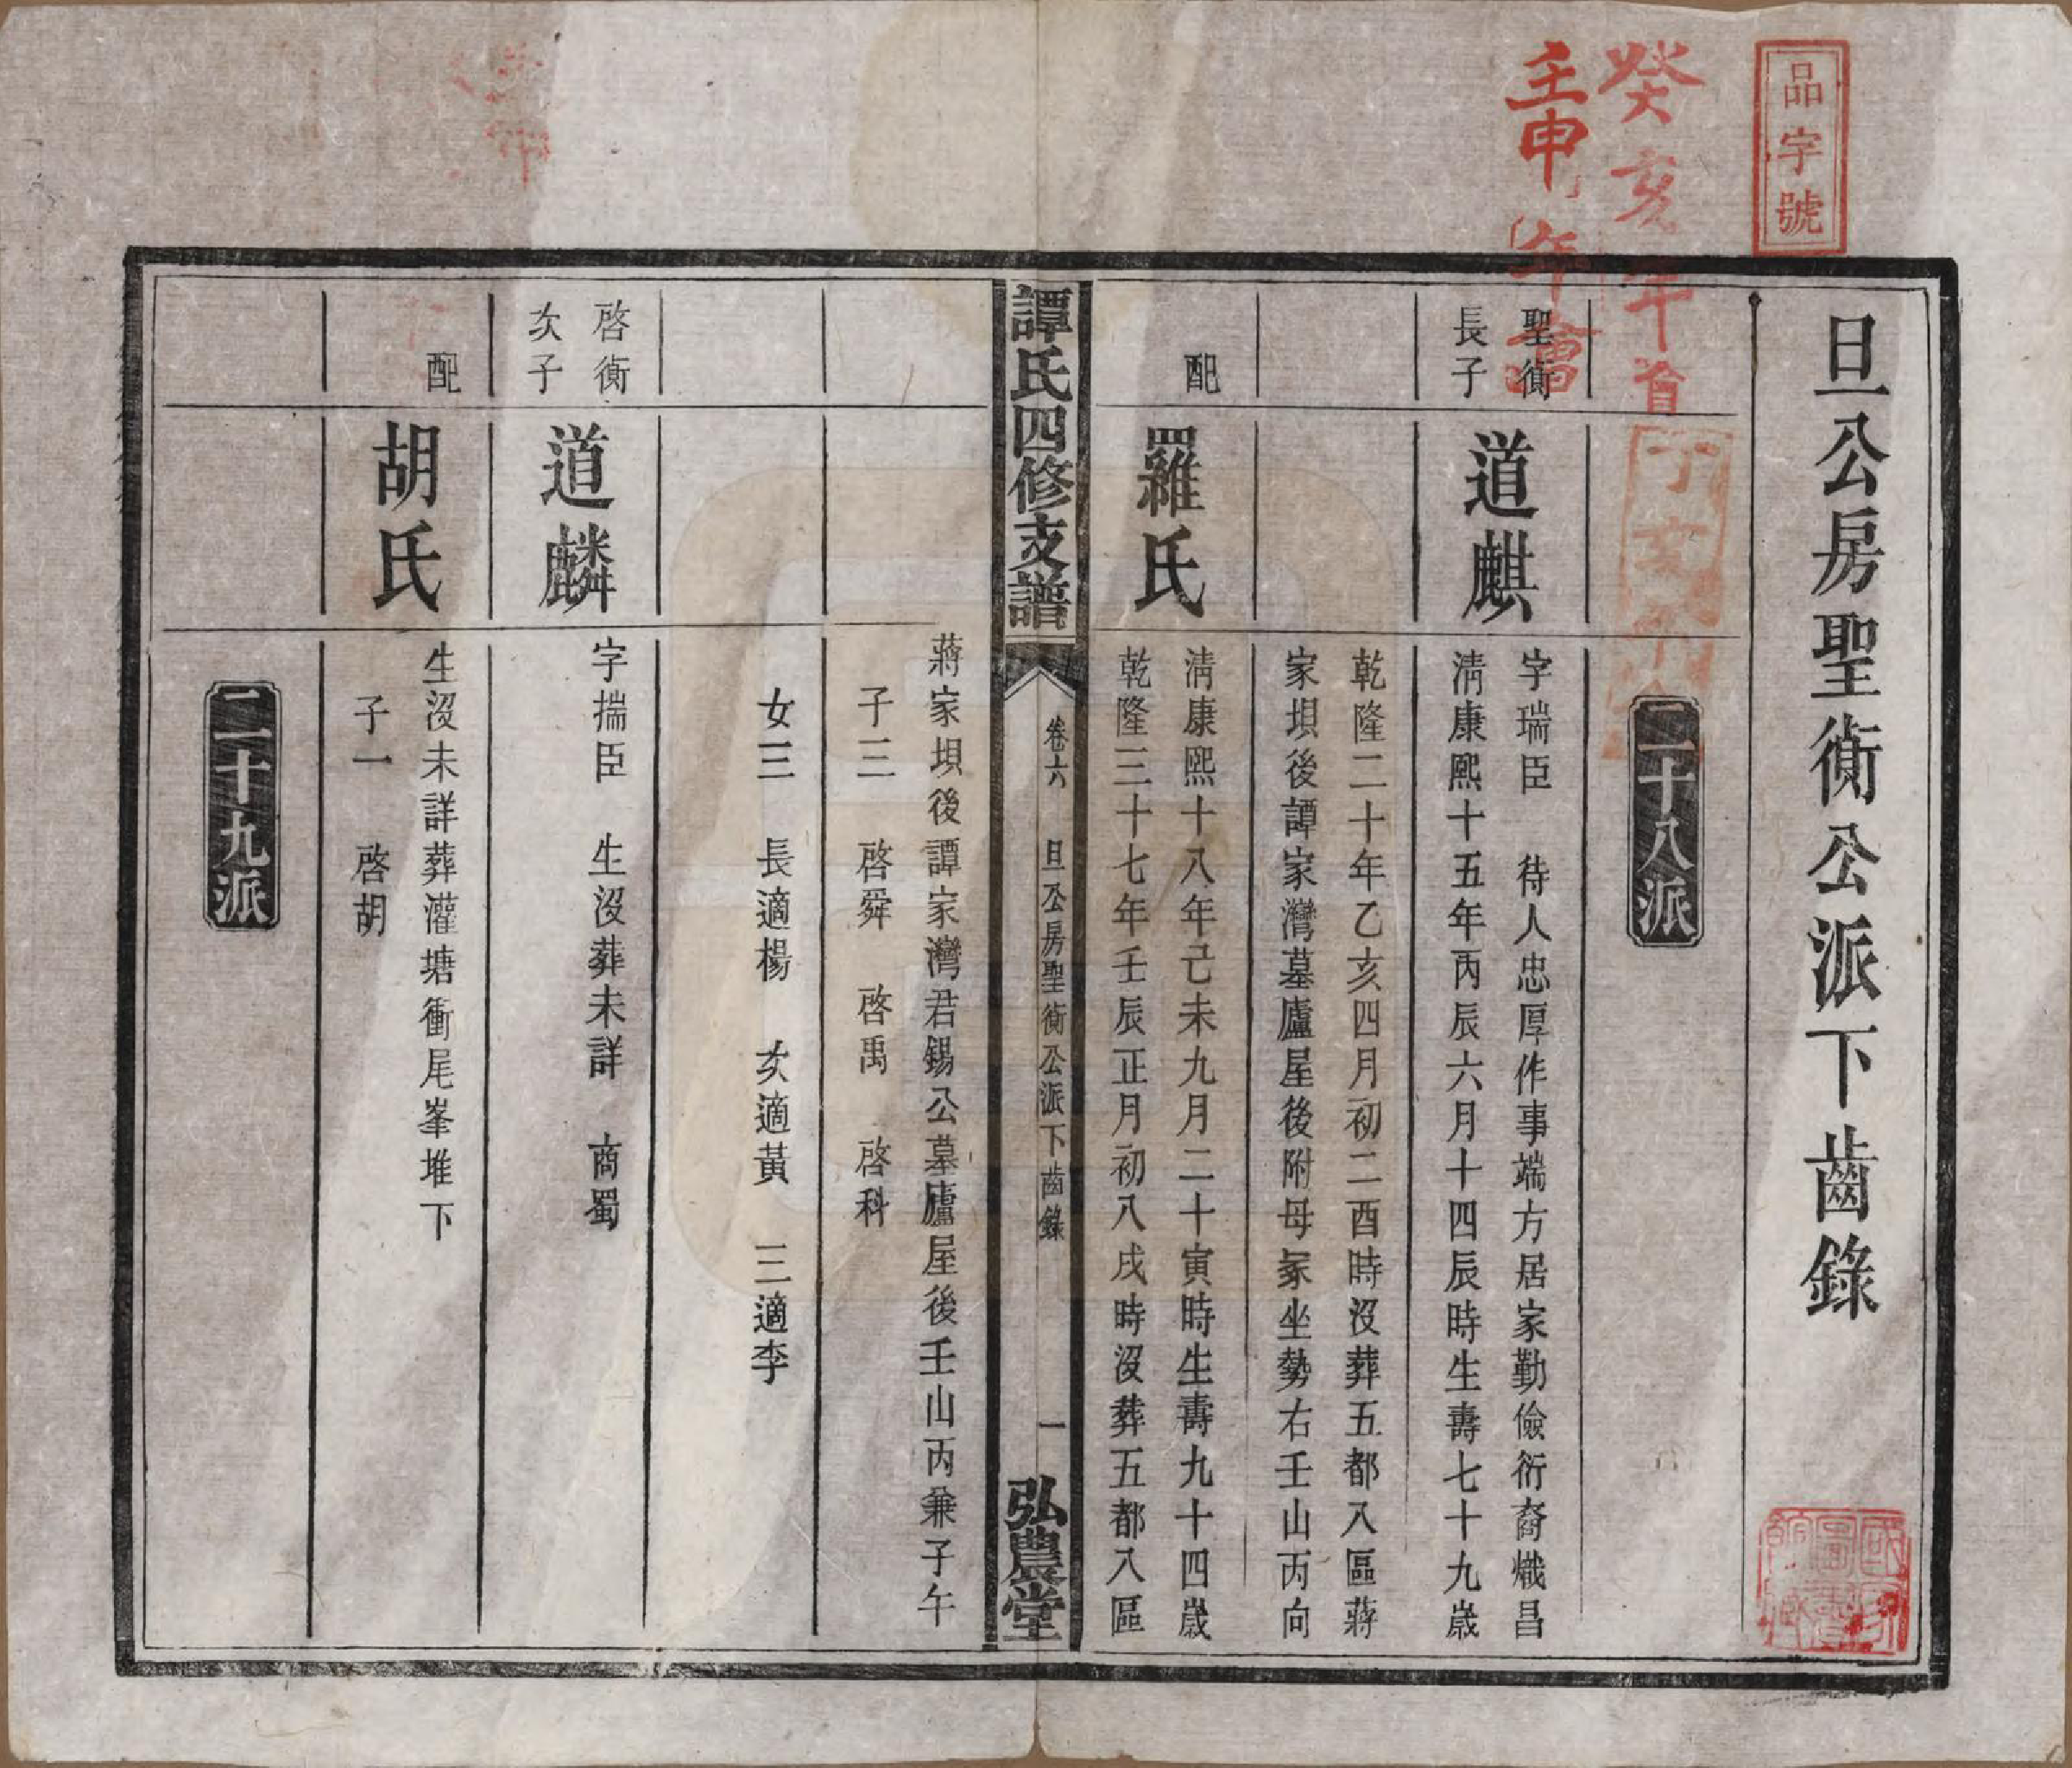 品字號
癸亥年首
壬申年會
丁亥
旦公房聖衡公派下齒錄
二十八派
聖衡
長子
道麒
字瑞臣　待人忠厚作事端方居家勤儉衍裔熾昌
淸康熙十五年丙辰六月十四辰時生壽七十九歲
乾隆二十年乙亥四月初二酉時沒葬五都入區蔣
家垻後譚家灣墓廬屋後附母冢坐勢右壬山丙向
配
羅氏
淸康熙十八年己未九月二十寅時生壽九十四歲
乾隆三十七年壬辰正月初八戌時沒葬五都入區
譚氏四修支譜
卷六　旦公房聖衡公派下齒錄
一
弘農堂
蔣家垻後譚家灣君錫公墓廬屋後壬山丙兼子午
子三　啓舜　啓禹　啓科
女三　長適楊　次適黃　三適李
啓衡
次子
道麟
字揣臣　生沒葬未詳　商蜀
配
胡氏
生沒未詳葬灌塘衝尾峯堆下
子一　啓胡
二十九派